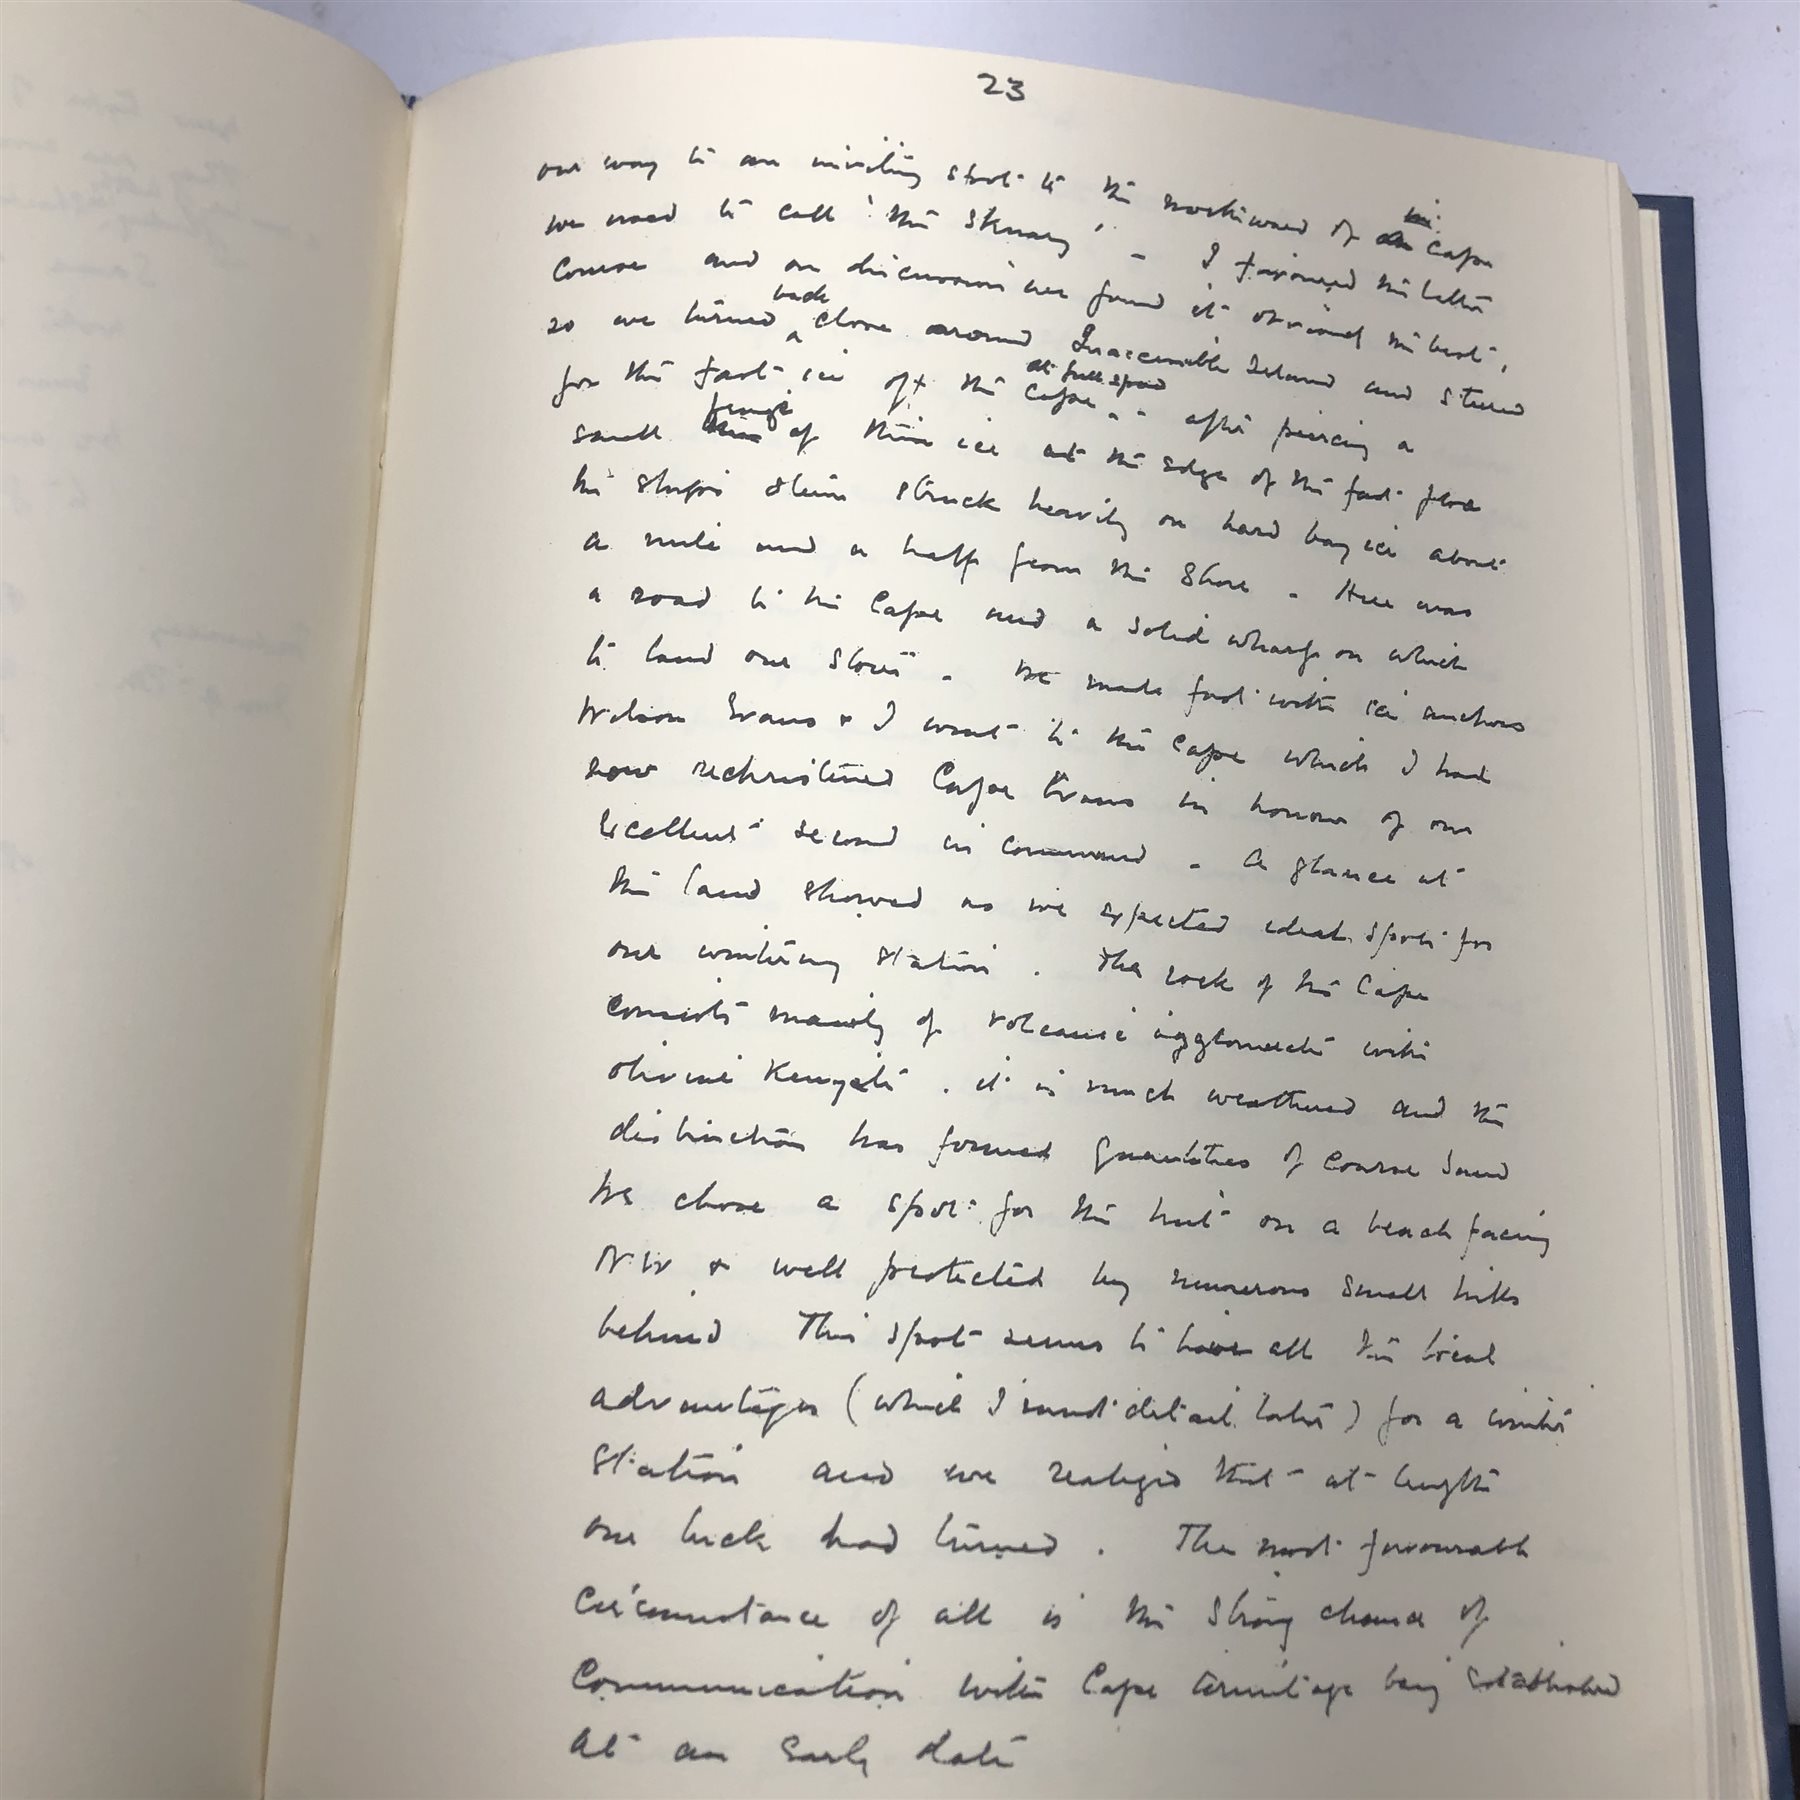 23
our way to an inviting spot to the northward of the Cape
we used to call 'the Skuary' - I favoured the latter
course and on discussion we found it obviously the best,
so we turned back close around Inaccessible Island and steered
for the fast ice off the Cape at full speed - - after piercing a
small fringe of thin ice at the edge of the fast floe
the ship's stem struck heavily on hard bay ice about
a mile and a half from the shore - Here was
a road to the Cape and a solid wharf on which
to land our stores - We made fast with ice anchors
Wilson Evans & I went to the Cape which I had
now rechristened Cape Evans in honour of our
excellent second in command - A glance at
the land showed as we expected ideal spots for
our wintering station . The rock of the Cape
consists mainly of volcanic agglomerate with
olivine Kenyte . it is much weathered and the
has formed quantities of coarse sand
We chose a spot for the hut on a beach facing
NW & well protected by numerous small hills
behind This spot seems to have all the local
advantages (which I must detail later) for a winter
station and we realized that at length
our luck had turned . The most favourable
circumstance of all is the strong chance of
Communication with Cape Armitage being established
at an early date